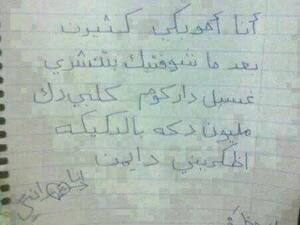 أنا أحوبكي كثيرن
بعد ما شوفتيك بتنشري
غسيل داركوم كلبي دك
مليون دكه بالدكيكه
اظكريني دايمن